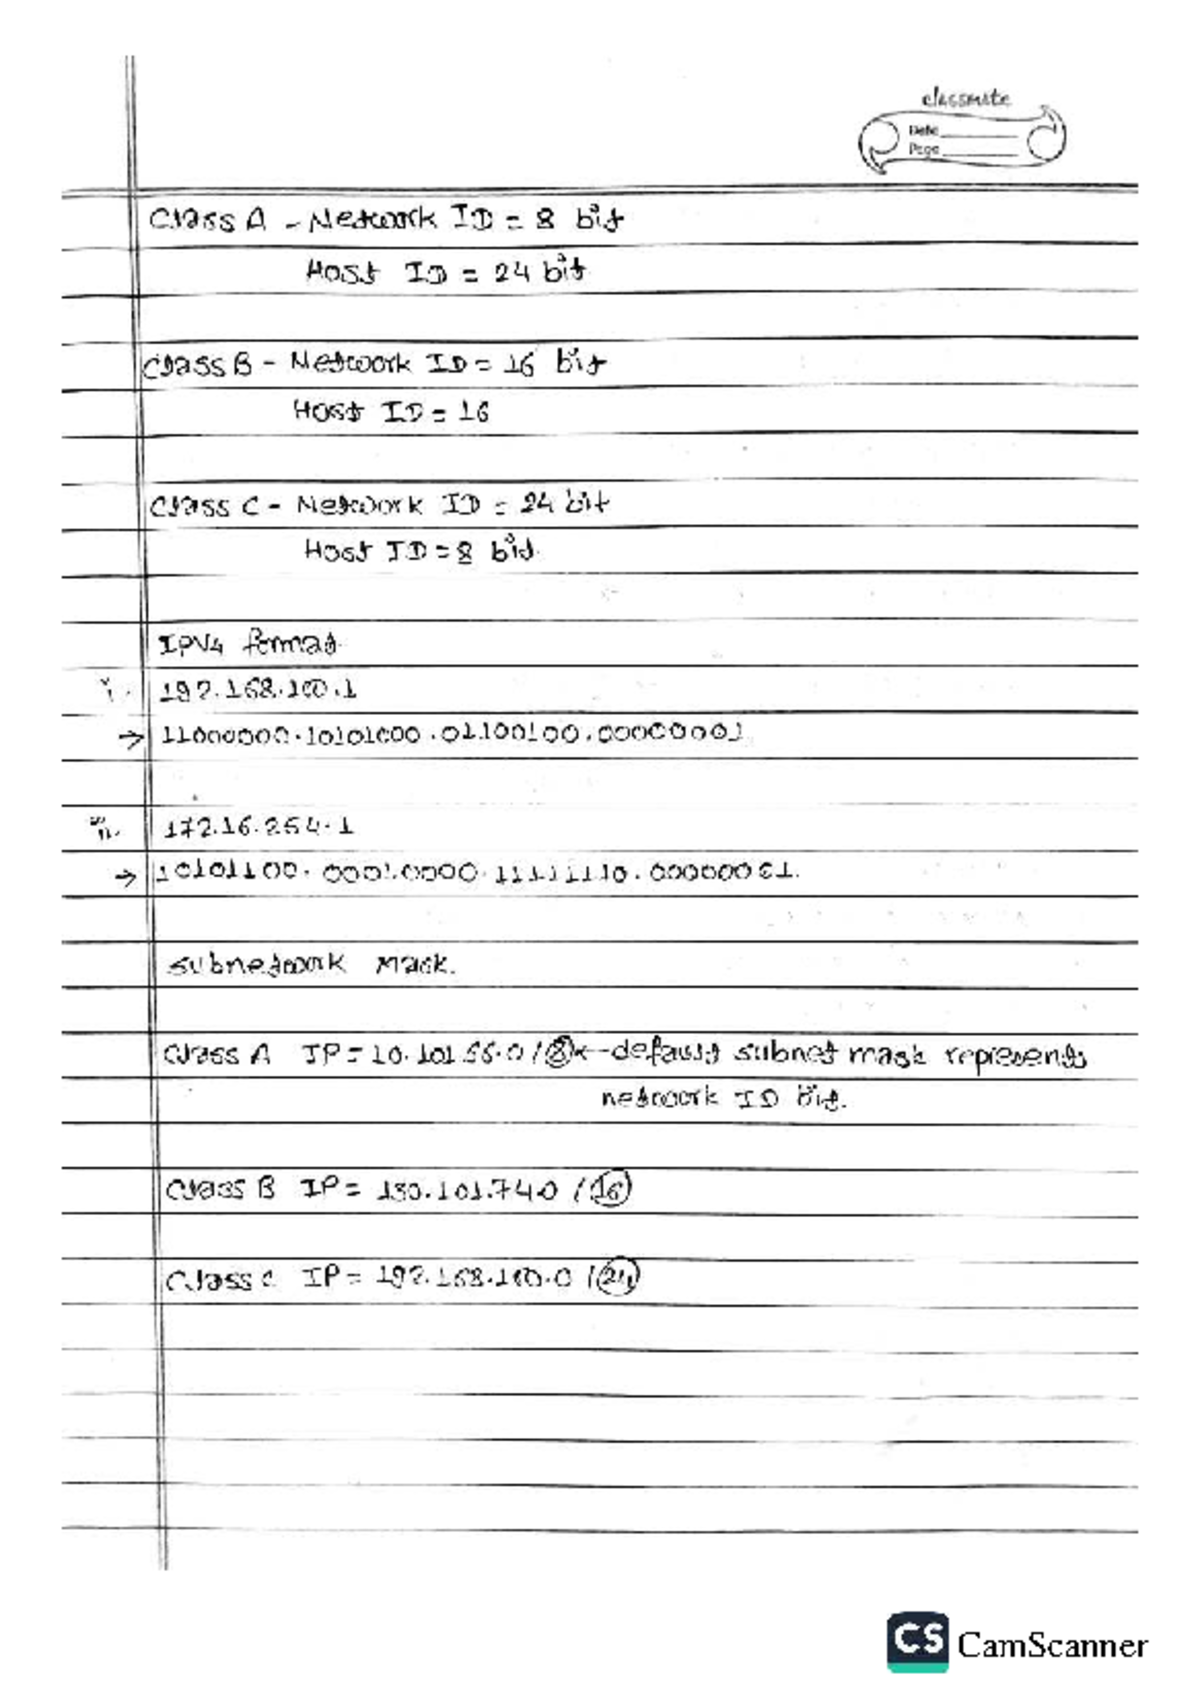 classmate
Date
Page
Class A - Network ID = 8 bit
Host ID = 24 bit
Class B - Network ID = 16 bit
Host ID = 16
Class C - Network ID = 24 bit
Host ID = 8 bit.
IPV4 format.
i. 192.168.100.1
→ 11000000.10101000.01100100.00000001
ii. 172.16.254.1
→ 10101100.00010000.11111110.00000001.
Subnetwork Mask.
Class A IP = 10.101.56.0 /8 ← default subnet mask represents
network ID bit.
Class B IP = 130.101.74.0 /16
Class C IP = 192.168.100.0 /24
CS CamScanner